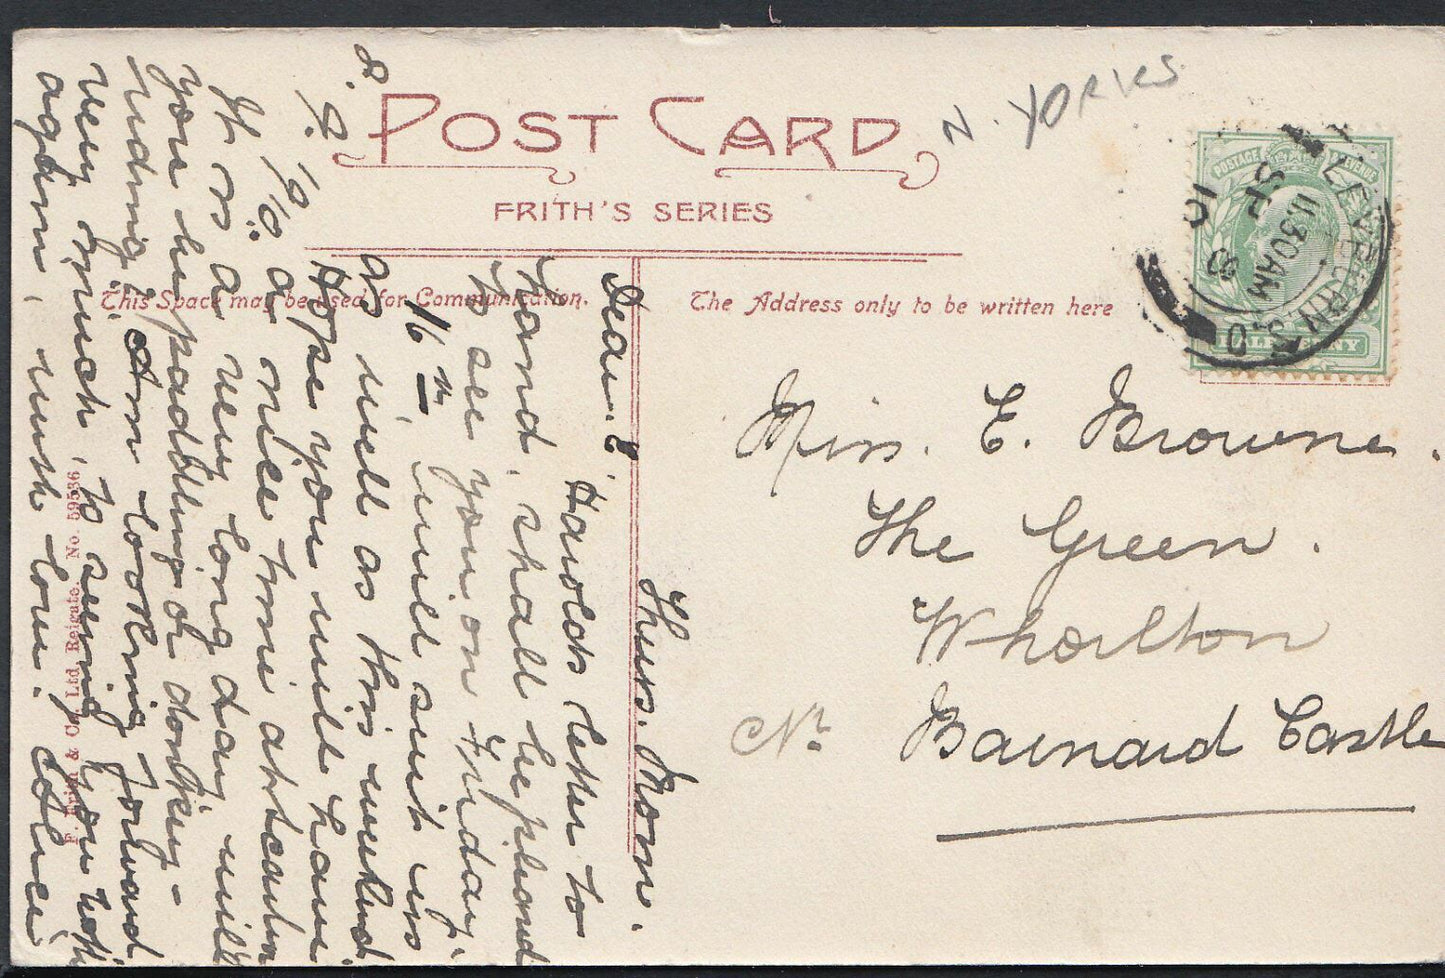 N. YORKS
POST CARD
FRITH'S SERIES
This Space may be used for Communication.
The Address only to be written here
POSTAGE REVENUE
HALFPENNY
LEYBURN S.O
11.30AM
SP
10
Miss. E. Browne.
The Green.
Whorlton
Nr Barnard Castle
Thurs. Morn.
Dear. E. Harolds letter to
hand. shall be pleased
to see you on Friday.
16th, will suit us
as well as this weekend
Hope you will have
a nice time at Seaton
It is a very long day will
you be paddling or donkey-
riding? Am looking forward
very much, to seeing you both
again, with love.
8.9.10.
F. Frith & Co. Ltd. Reigate. No. 59536